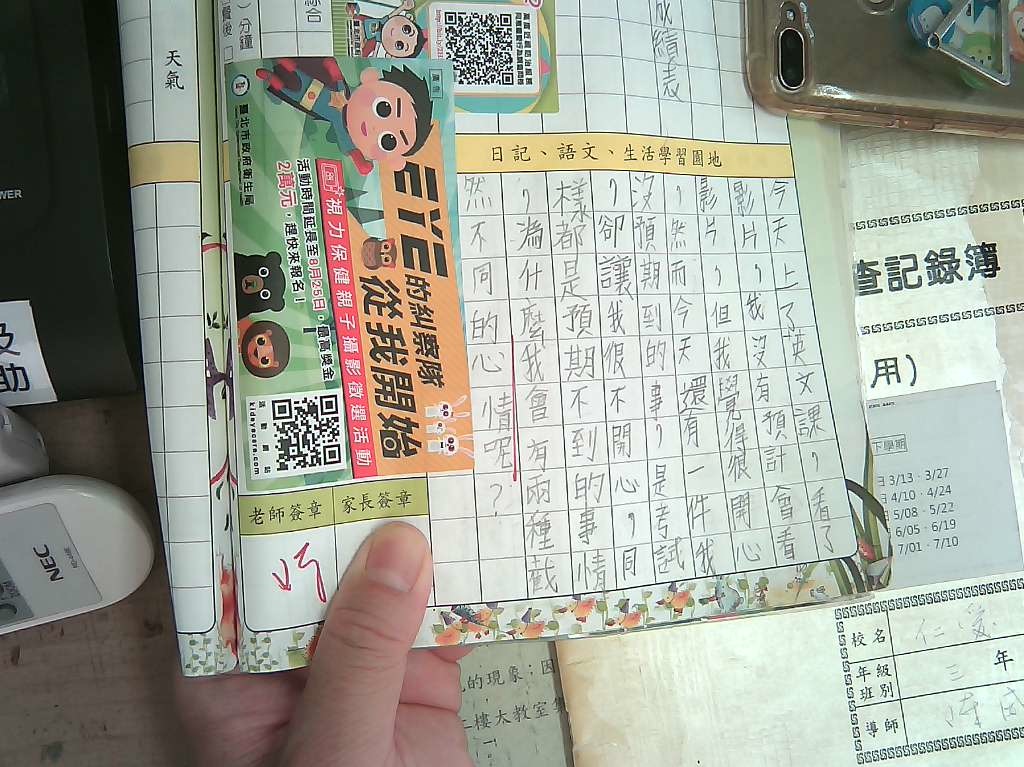 成績表
天氣
日記、語文、生活學習園地
今天上了英文課，看了
影片，我沒有預計會看
影片，但我覺得很開心
，然而今天還有一件我
沒預期到的事，是考試
，卻讓我很不開心，同
樣都是預期不到的事情
，為什麼我會有兩種截
然不同的心情呢？
臺北市政府衛生局
EYE的糾察隊
從我開始
視力保健親子攝影徵選活動
活動時間延長至8月25日，最高獎金
2萬元，趕快來報名！
活動網站
kidseyecare.com
老師簽章
家長簽章
好
分鐘
POWER
NEC
及
助
查記錄簿
用）
下學期
3/13、3/27
4/10、4/24
5/08、5/22
6/05、6/19
7/01、7/10
校名
仁愛
年級
班別
三年
導師
的現象：因
樓大教室